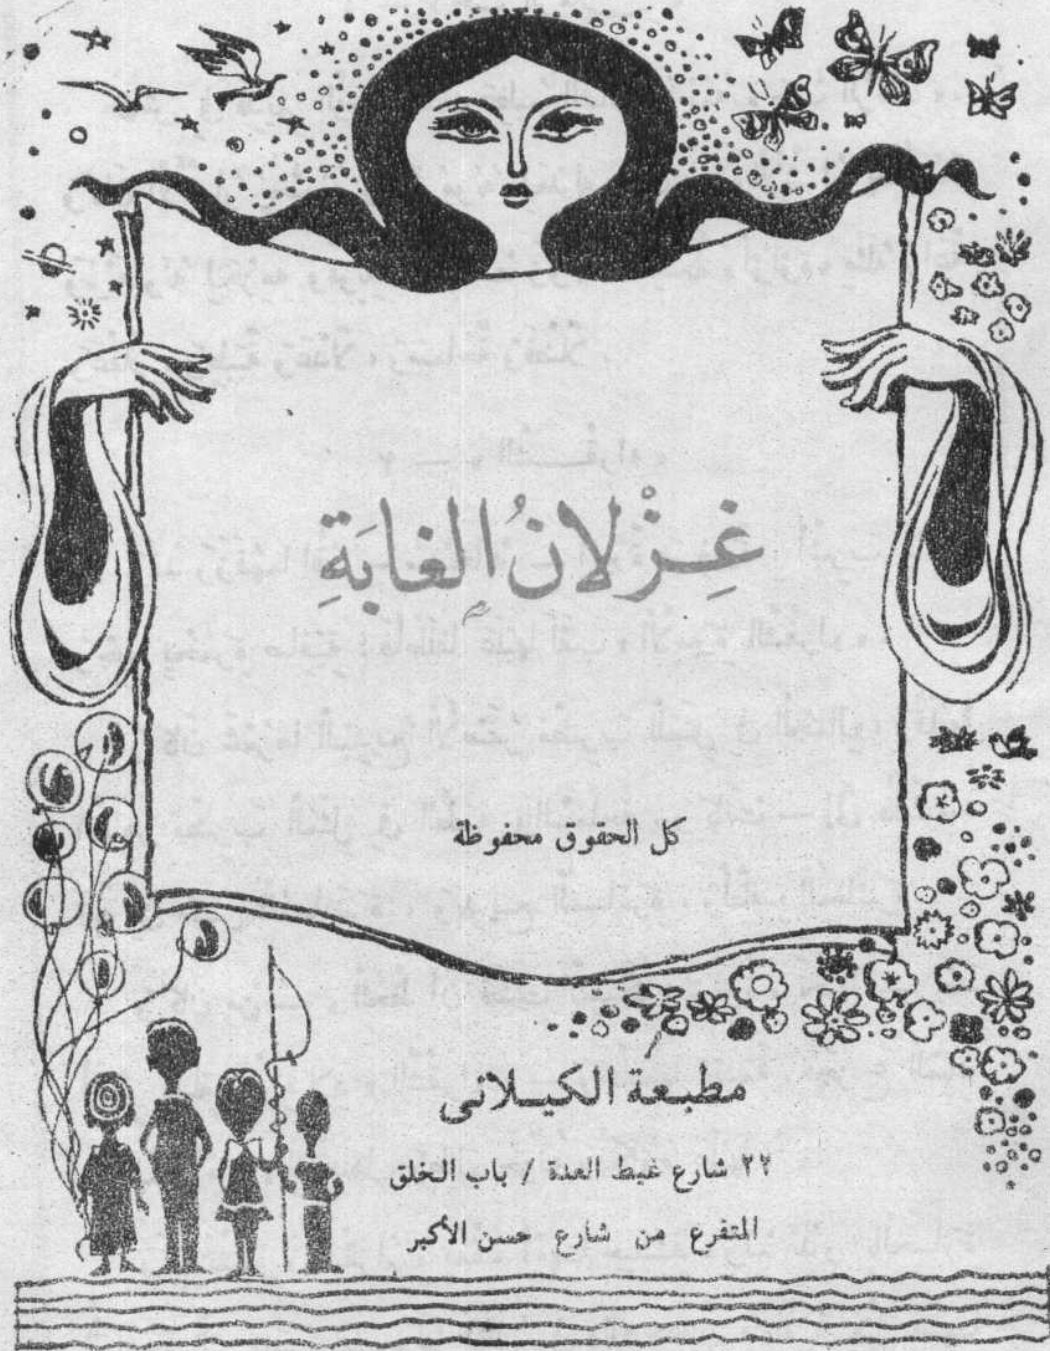 غِزْلانُ الغابَةِ
كل الحقوق محفوظة
مطبعة الكيلانى
٢٢ شارع غيط العدة / باب الخلق
المتفرع من شارع حسن الأكبر